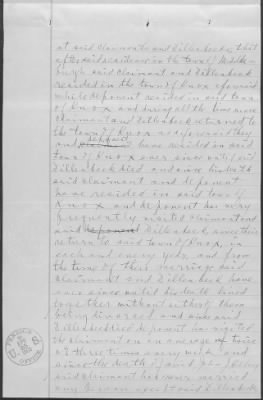 at said claimants and Dillenbeck, that
after said residence in the town of Middle-
burgh said claimant and Dillenbeck
resided in the town of Knox aforesaid
while deponent resided in said town
of Knox and during all the time since
claimant and Dillenbeck returned to
the town of Knox as aforesaid they
and deponent have resided in said
town of Knox ever since until said
Dillenbeck died and since his death
said claimant and deponent
have resided in said town of
Knox and deponent has very
frequently visited claimant and
said Dillenbeck since their
return to said town of Knox, in
each and every year, and from
the time of their marriage said
claimant and Dillenbeck have
ever since until his death lived
together without either of them
being divorced and since said
Dillenbeck died deponent has visited
the claimant on an average of twice
or three times every week and
since the death of said
said claimant has never married
any person except said Dillenbeck
U. S.
OFFICE